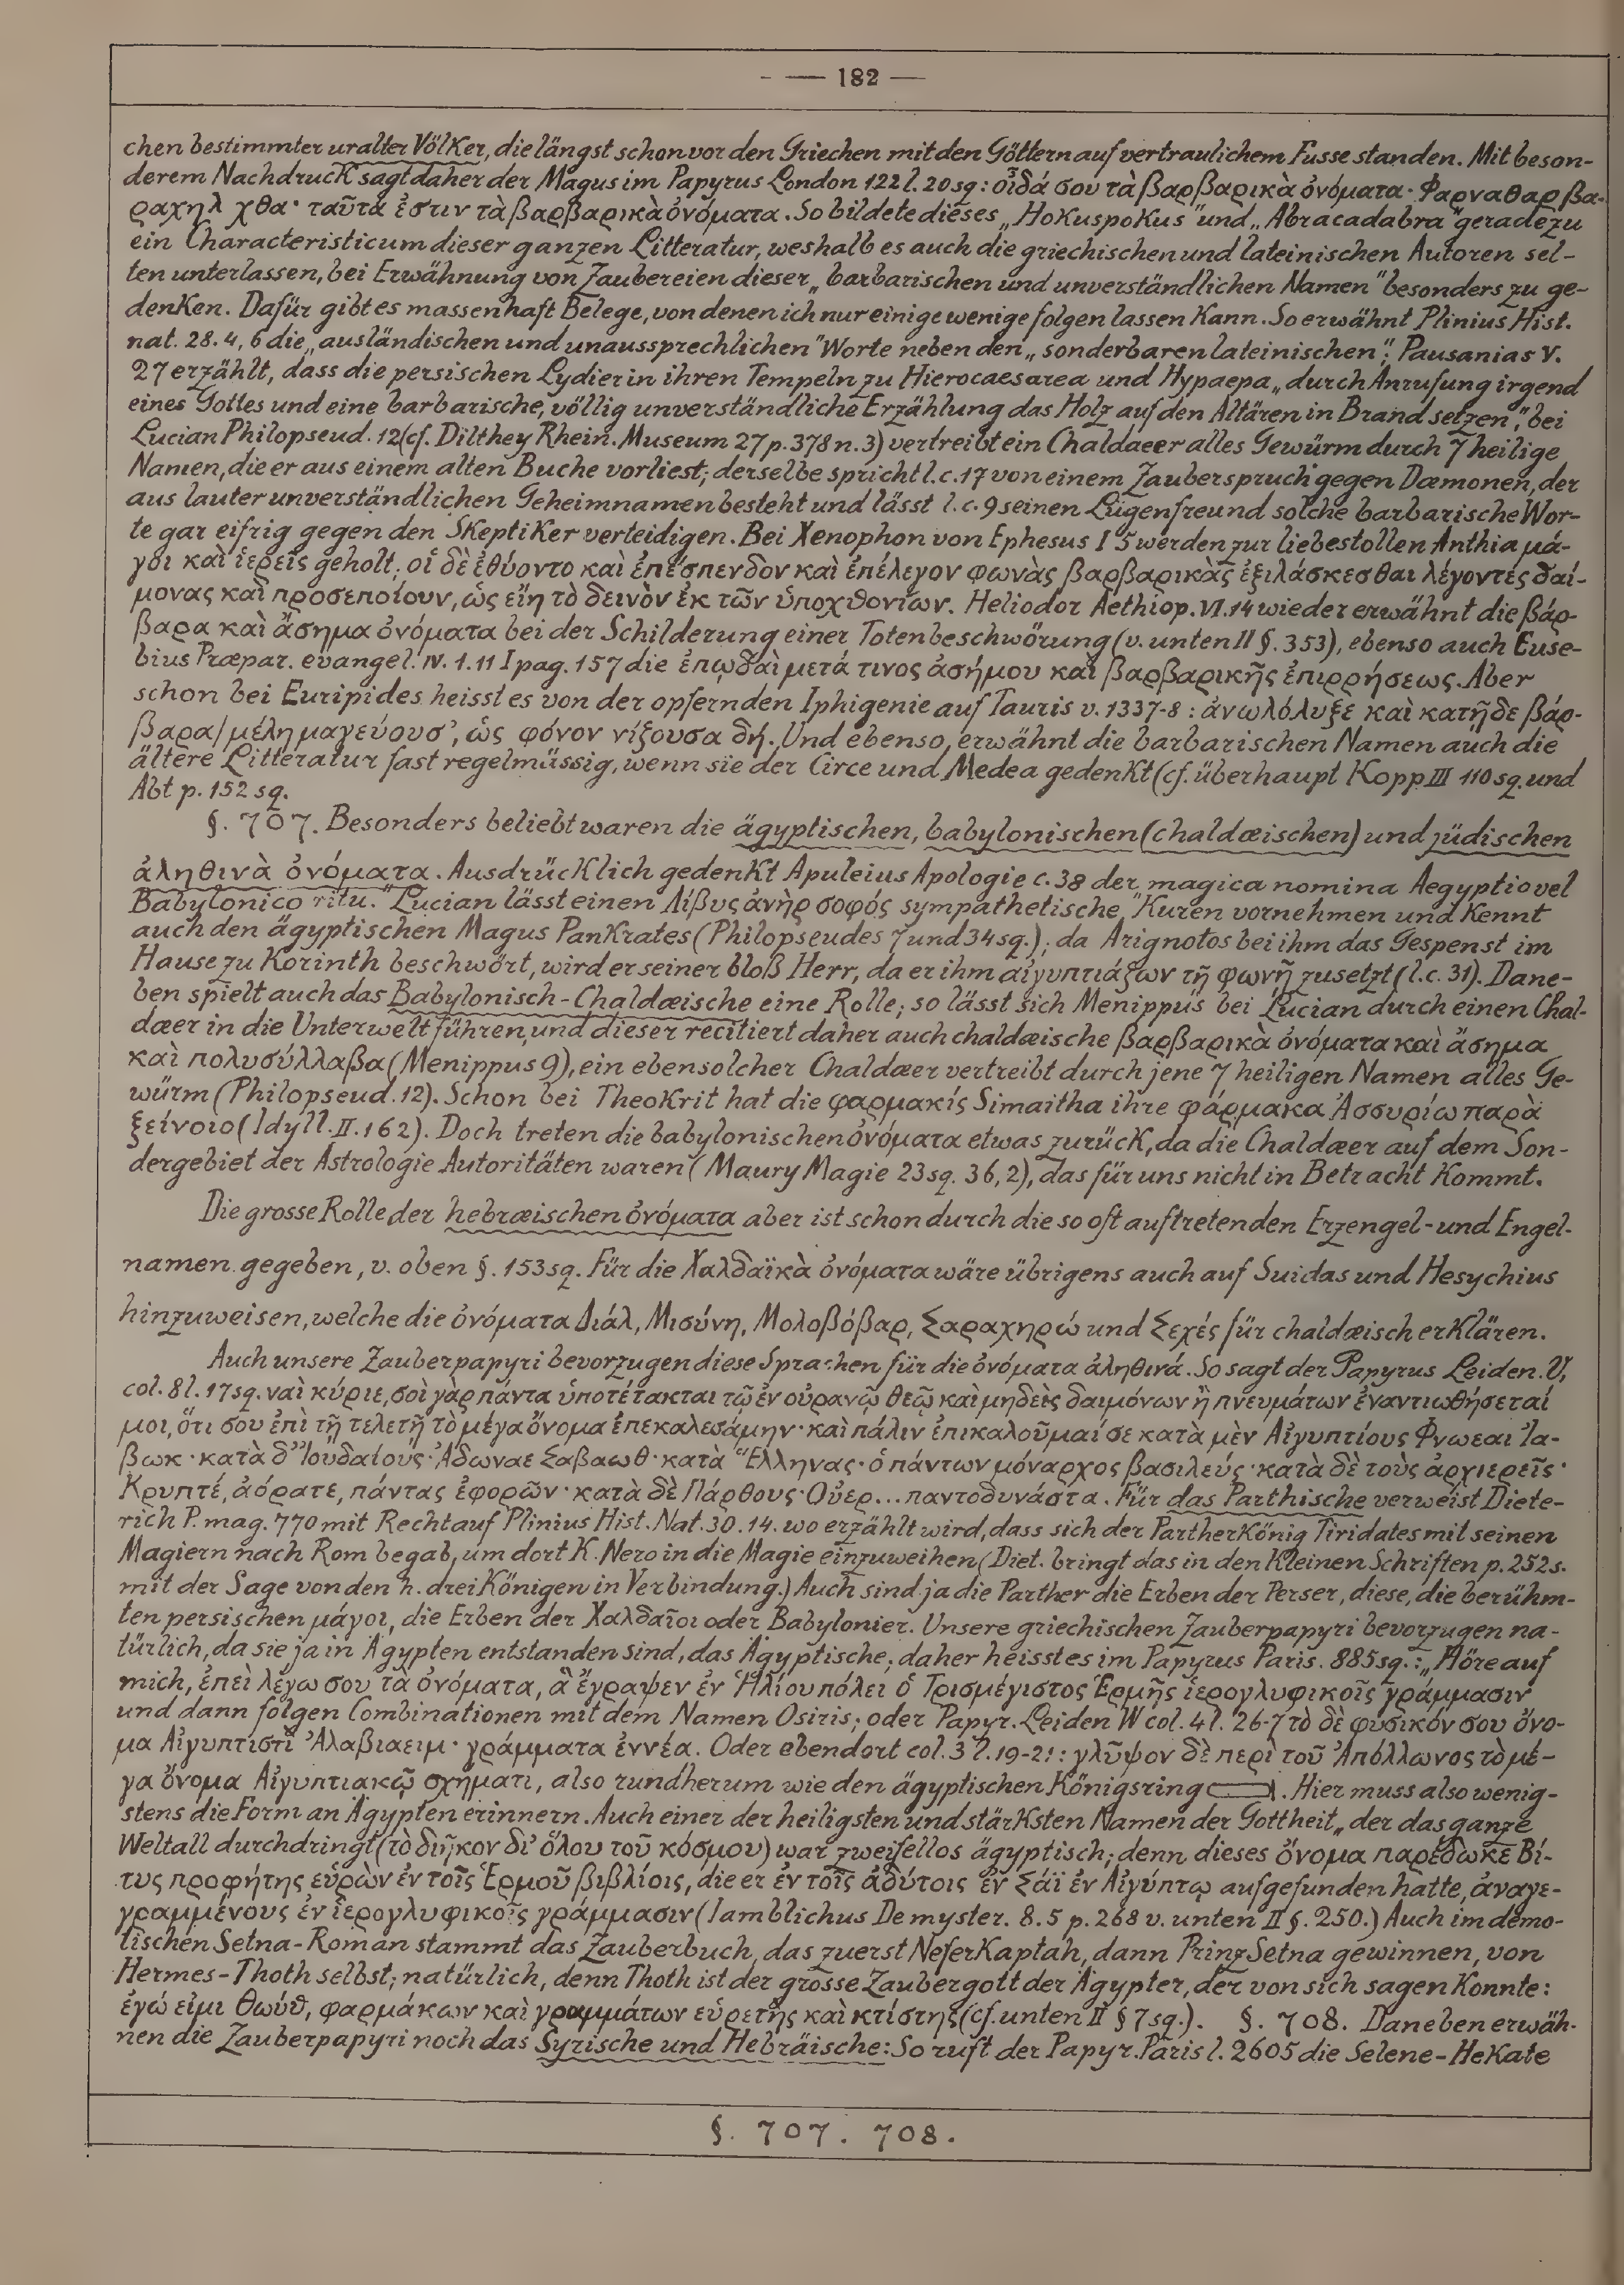 - — 182 —
chen bestimmter uralter Völker, die längst schon vor den Griechen mit den Göttern auf vertraulichem Fusse standen. Mit beson-
derem Nachdruck sagt daher der Magus im Papyrus London 122 l. 20 sq: οἶδά σου τὰ βαρβαρικὰ ὀνόματα· Φαρναθαρ βα-
ραχηλ χθα· ταῦτά ἐστιν τὰ βαρβαρικὰ ὀνόματα. So bildete dieses „Hokuspokus" und „Abracadabra" geradezu
ein Characteristicum dieser ganzen Litteratur, weshalb es auch die griechischen und lateinischen Autoren sel-
ten unterlassen, bei Erwähnung von Zaubereien dieser „barbarischen und unverständlichen Namen" besonders zu ge-
denken. Dafür gibt es massenhaft Belege, von denen ich nur einige wenige folgen lassen kann. So erwähnt Plinius Hist.
nat. 28. 4, 6 die „ausländischen und unaussprechlichen" Worte neben den „sonderbaren lateinischen"; Pausanias V.
27 erzählt, dass die persischen Lydier in ihren Tempeln zu Hierocaesarea und Hypaepa „durch Anrufung irgend
eines Gottes und eine barbarische, völlig unverständliche Erzählung das Holz auf den Altären in Brand setzen", bei
Lucian Philopseud. 12 (cf. Dilthey Rhein. Museum 27 p. 378 n. 3) vertreibt ein Chaldaeer alles Gewürm durch 7 heilige
Namen, die er aus einem alten Buche vorliest; derselbe spricht l. c. 17 von einem Zauberspruch gegen Dæmonen, der
aus lauter unverständlichen Geheimnamen besteht und lässt l. c. 9 seinen Lügenfreund solche barbarische Wor-
te gar eifrig gegen den Skeptiker verteidigen. Bei Xenophon von Ephesus I 5 werden zur liebestollen Anthia μά-
γοι καὶ ἱερεῖς geholt; οἳ δὲ ἐθύοντο καὶ ἐπέσπενδον καὶ ἐπέλεγον φωνὰς βαρβαρικὰς ἐξιλάσκεσθαι λέγοντες δαί-
μονας καὶ προσεποίουν, ὡς εἴη τὸ δεινὸν ἐκ τῶν ὑποχθονίων. Heliodor Aethiop. VI. 14 wieder erwähnt die βάρ-
βαρα καὶ ἄσημα ὀνόματα bei der Schilderung einer Totenbeschwörung (v. unten II §. 353), ebenso auch Euse-
bius Præpar. evangel. IV. 1. 11 I pag. 157 die ἐπῳδαὶ μετά τινος ἀσήμου καὶ βαρβαρικῆς ἐπιρρήσεως. Aber
schon bei Euripides heisst es von der opfernden Iphigenie auf Tauris v. 1337-8: ἀνωλόλυξε καὶ κατῇδε βάρ-
βαρα/μέλη μαγεύουσ', ὡς φόνον νίζουσα δή. Und ebenso erwähnt die barbarischen Namen auch die
ältere Litteratur fast regelmässig, wenn sie der Circe und Medea gedenkt (cf. überhaupt Kopp III 110 sq. und
Abt p. 152 sq.
§. 707. Besonders beliebt waren die ägyptischen, babylonischen (chaldæischen) und jüdischen
ἀληθινὰ ὀνόματα. Ausdrücklich gedenkt Apuleius Apologie c. 38 der „magica nomina Aegyptio vel
Babylonico ritu." Lucian lässt einen Λίβυς ἀνὴρ σοφός sympathetische Kuren vornehmen und kennt
auch den ägyptischen Magus Pankrates (Philopseudes 7 und 34 sq.); da Arignotos bei ihm das Gespenst im
Hause zu Korinth beschwört, wird er seiner bloß Herr, da er ihm αἰγυπτιάζων τῇ φωνῇ zusetzt (l. c. 31). Dane-
ben spielt auch das Babylonisch-Chaldæische eine Rolle; so lässt sich Menippus bei Lucian durch einen Chal-
dæer in die Unterwelt führen, und dieser recitiert daher auch chaldæische βαρβαρικὰ ὀνόματα καὶ ἄσημα
καὶ πολυσύλλαβα (Menippus 9), ein ebensolcher Chaldæer vertreibt durch jene 7 heiligen Namen alles Ge-
würm (Philopseud. 12). Schon bei Theokrit hat die φαρμακίς Simaitha ihre φάρμακα Ἀσσυρίω παρὰ
ξείνοιο (Idyll. II. 162). Doch treten die babylonischen ὀνόματα etwas zurück, da die Chaldæer auf dem Son-
dergebiet der Astrologie Autoritäten waren (Maury Magie 23 sq. 36, 2), das für uns nicht in Betracht kommt.
Die grosse Rolle der hebræischen ὀνόματα aber ist schon durch die so oft auftretenden Erzengel- und Engel-
namen gegeben, v. oben §. 153 sq. Für die Χαλδαϊκὰ ὀνόματα wäre übrigens auch auf Suidas und Hesychius
hinzuweisen, welche die ὀνόματα Διάλ, Μισύνη, Μολοβόβαρ, Σαραχηρώ und Σεχές für chaldæisch erklären.
Auch unsere Zauberpapyri bevorzugen diese Sprachen für die ὀνόματα ἀληθινά. So sagt der Papyrus Leiden. V,
col. 8 l. 17 sq. ναὶ κύριε, σοὶ γὰρ πάντα ὑποτέτακται τῷ ἐν οὐρανῷ θεῷ καὶ μηδεὶς δαιμόνων ἢ πνευμάτων ἐναντιωθήσεταί
μοι, ὅτι σου ἐπὶ τῇ τελετῇ τὸ μέγα ὄνομα ἐπεκαλεσάμην· καὶ πάλιν ἐπικαλοῦμαί σε κατὰ μὲν Αἰγυπτίους Φνωεαι Ἰα-
βωκ· κατὰ δ' Ἰουδαίους· Ἀδωναε Σαβαωθ· κατὰ Ἕλληνας· ὁ πάντων μόναρχος βασιλεύς· κατὰ δὲ τοὺς ἀρχιερεῖς·
Κρυπτέ, ἀόρατε, πάντας ἐφορῶν· κατὰ δὲ Πάρθους· Οὐερ... παντοδυνάστα. Für das Parthische verweist Diete-
rich P. mag. 770 mit Recht auf Plinius Hist. Nat. 30. 14. wo erzählt wird, dass sich der Partherkönig Tiridates mit seinen
Magiern nach Rom begab, um dort K. Nero in die Magie einzuweihen (Diet. bringt das in den Kleinen Schriften p. 252 s.
mit der Sage von den h. drei Königen in Verbindung.) Auch sind ja die Parther die Erben der Perser, diese, die berühm-
ten persischen μάγοι, die Erben der Χαλδαῖοι oder Babylonier. Unsere griechischen Zauberpapyri bevorzugen na-
türlich, da sie ja in Ägypten entstanden sind, das Ägyptische; daher heisst es im Papyrus Paris. 885 sq.: „Höre auf
mich, ἐπεὶ λέγω σου τὰ ὀνόματα, ἃ ἔγραψεν ἐν Ἡλίουπόλει ὁ Τρισμέγιστος Ἑρμῆς ἱερογλυφικοῖς γράμμασιν
und dann folgen Combinationen mit dem Namen Osiris; oder Papyr. Leiden W col. 4 l. 26-7 τὸ δὲ φυσικόν σου ὄνο-
μα Αἰγυπτιστὶ Ἀλαβιαειμ· γράμματα ἐννέα. Oder ebendort col. 3 l. 19-21: γλῦψον δὲ περὶ τοῦ Ἀπόλλωνος τὸ μέ-
γα ὄνομα Αἰγυπτιακῷ σχήματι, also rundherum wie den ägyptischen Königsring. Hier muss also wenig-
stens die Form an Ägypten erinnern. Auch einer der heiligsten und stärksten Namen der Gottheit „der das ganze
Weltall durchdringt (τὸ διῆκον δι' ὅλου τοῦ κόσμου) war zweifellos ägyptisch; denn dieses ὄνομα παρέδωκε Βί-
τυς προφήτης εὑρὼν ἐν τοῖς Ἑρμοῦ βιβλίοις, die er ἐν τοῖς ἀδύτοις ἐν Σάϊ ἐν Αἰγύπτῳ aufgefunden hatte, ἀναγε-
γραμμένους ἐν ἱερογλυφικοῖς γράμμασιν (Iamblichus De myster. 8. 5 p. 268 v. unten II §. 250.) Auch im demo-
tischen Setna-Roman stammt das Zauberbuch, das zuerst Neferkaptah, dann Prinz Setna gewinnen, von
Hermes-Thoth selbst; natürlich, denn Thoth ist der grosse Zaubergott der Ägypter, der von sich sagen konnte:
ἐγώ εἰμι Θωύθ, φαρμάκων καὶ γραμμάτων εὑρετὴς καὶ κτίστης (cf. unten II § 7 sq.). §. 708. Daneben erwäh-
nen die Zauberpapyri noch das Syrische und Hebräische: So ruft der Papyr. Paris l. 2605 die Selene-Hekate
§. 707. 708.